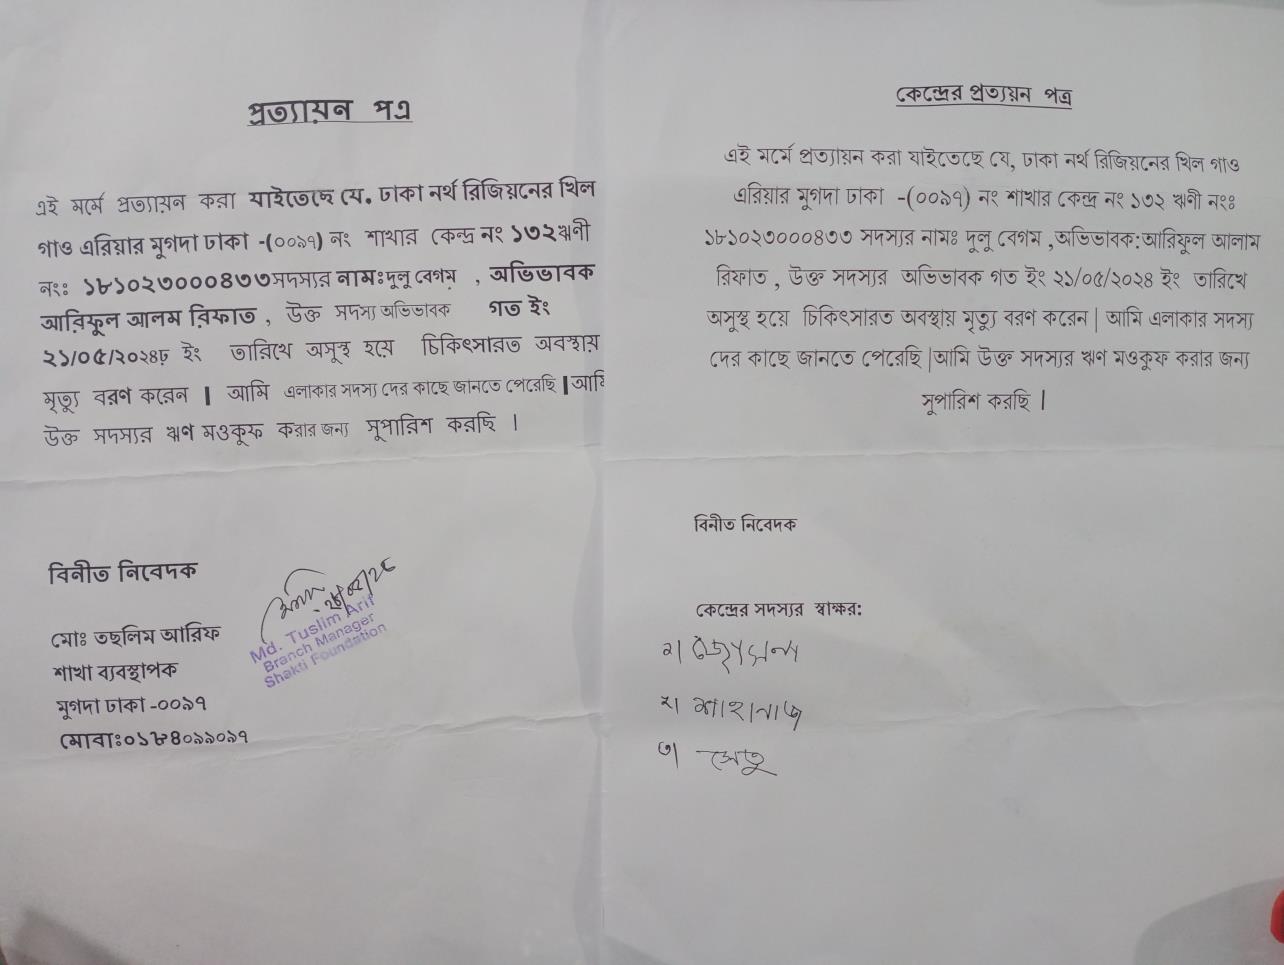 প্রত্যায়ন পত্র
এই মর্মে প্রত্যায়ন করা যাইতেছে যে. ঢাকা নর্থ রিজিয়নের খিল
গাও এরিয়ার মুগদা ঢাকা -(০০৯৭) নং শাখার কেন্দ্র নং ১৩২ঋনী
নং: ১৮১০২৩০০০৪৩৩সদস্যর নাম:দুলু বেগম , অভিভাবক
আরিফুল আলম রিফাত , উক্ত সদস্য অভিভাবক গত ইং
২১/০৫/২০২৪ ইং তারিখে অসুস্থ হয়ে চিকিৎসারত অবস্থায়
মৃত্যু বরণ করেন | আমি এলাকার সদস্য দের কাছে জানতে পেরেছি |আমি
উক্ত সদস্যর ঋণ মওকুফ করার জন্য সুপারিশ করছি ।
বিনীত নিবেদক
Md. Tuslim Arif
Branch Manager
Shakti Foundation
মোঃ তছলিম আরিফ
শাখা ব্যবস্থাপক
মুগদা ঢাকা -০০৯৭
মোবা:০১৮৪০৯৯০৯৭
কেন্দ্রের প্রত্যয়ন পত্র
এই মর্মে প্রত্যায়ন করা যাইতেছে যে, ঢাকা নর্থ রিজিয়নের খিল গাও
এরিয়ার মুগদা ঢাকা -(০০৯৭) নং শাখার কেন্দ্র নং ১৩২ ঋনী নং:
১৮১০২৩০০০৪৩৩ সদস্যর নাম: দুলু বেগম ,অভিভাবক:আরিফুল আলাম
রিফাত , উক্ত সদস্যর অভিভাবক গত ইং ২১/০৫/২০২৪ ইং তারিখে
অসুস্থ হয়ে চিকিৎসারত অবস্থায় মৃত্যু বরণ করেন | আমি এলাকার সদস্য
দের কাছে জানতে পেরেছি |আমি উক্ত সদস্যর ঋণ মওকুফ করার জন্য
সুপারিশ করছি ।
বিনীত নিবেদক
কেন্দ্রের সদস্যর স্বাক্ষর:
১|
২| শাহানাজ
৩| সেতু